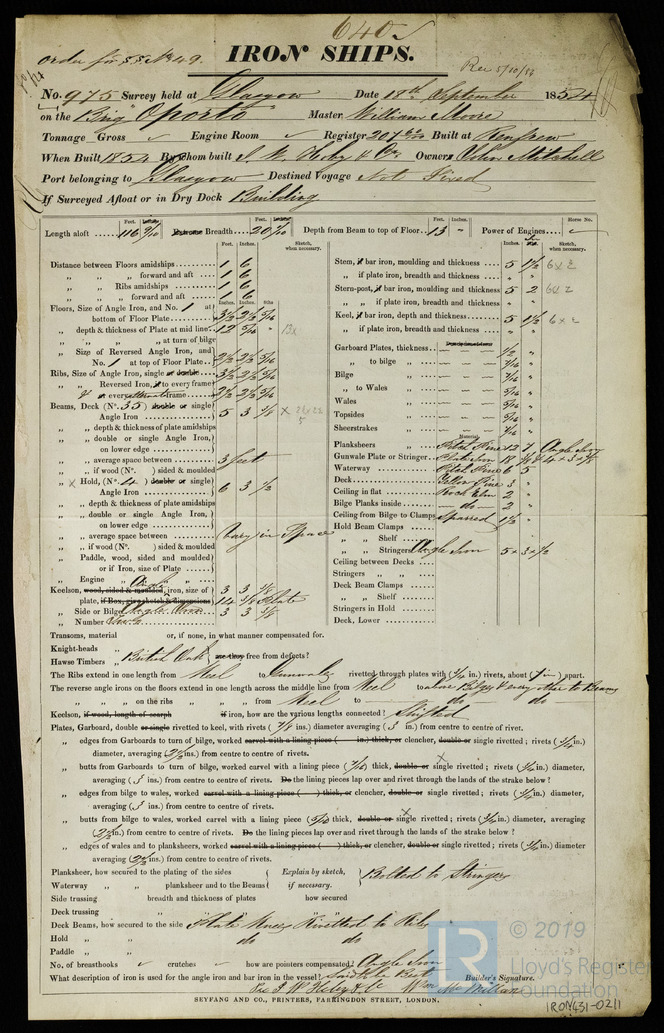 640
Order for SS No 49.
IRON SHIPS.
Rec 5/10/54
No. 975 Survey held at Glasgow Date 19th September 1854
on the Brig "Oporto" Master William Moore
Tonnage Gross Engine Room Register 207 Built at Renfrew
When Built 1854 By whom built J. W. Hoby & Co. Owners John Mitchell
Port belonging to Glasgow Destined Voyage Not Fixed
If Surveyed Afloat or in Dry Dock Building
Length aloft 116 9/10 Extreme Breadth 20 Depth from Beam to top of Floor 13 " Power of Engines
Feet. Inches. Feet. Inches. Feet. Inches. Horse No.
Feet. Inches. Sketch, when necessary. Inches. Sketch, when necessary.
Distance between Floors amidships 1 6
" " forward and aft 1 6
" Ribs amidships 1 6
" " forward and aft 1 6
Floors, Size of Angle Iron, and No. 1 at bottom of Floor Plate 3½ 2½ 5/16
" depth & thickness of Plate at mid line 12 5/16 " 13x
" " " at turn of bilge
" Size of Reversed Angle Iron, and No. 1 at top of Floor Plate 2½ 2½ 5/16
Ribs, Size of Angle Iron, single or double 3½ 2½ 5/16
" Reversed Iron, if to every frame
& or every alternate frame 2½ 2½ 5/16
Beams, Deck (No. 35) double or single Angle Iron 5 3
" " depth & thickness of plate amidships
" " double or single Angle Iron, on lower edge
" " average space between 3 feet
" " if wood (No. ) sided & moulded
" x Hold, (No. 4) double or single Angle Iron 6 3 1/2
" " depth & thickness of plate amidships
" " double or single Angle Iron, on lower edge
" " average space between Vary in Space
" " if wood (No. ) sided & moulded
" Paddle, wood, sided and moulded or if Iron, size of Plate
" Engine " "
Keelson, wood, sided & moulded, iron, size of Angle 3 3
plate, if Box, give sketch & dimensions 14 Plate
" Side or Bilge Angle Iron 3 3
" Number Two
Stem, if bar iron, moulding and thickness 5 1½ 6 x 2
" if plate iron, breadth and thickness " "
Stern-post, if bar iron, moulding and thickness 5 2 6 x 2
" " if plate iron, breadth and thickness " "
Keel, if bar iron, depth and thickness 5 1½ 6 x 2
" if plate iron, breadth and thickness " "
Garboard Plates, thickness 1/2 "
" to bilge 7/16 "
Bilge 7/16 "
" to Wales 5/16 "
Wales 5/16 "
Topsides 5/16 "
Sheerstrakes 7/16 "
Material
Planksheers Pitch Pine 12 Angle Iron
Gunwale Plate or Stringer Plate Iron 4 + 3 +
Waterway Pitch Pine 6 5
Deck Yellow Pine 3 "
Ceiling in flat Rock Elm 2 "
Bilge Planks inside do 2 "
Ceiling from Bilge to Clamps Sparred 1½ "
Hold Beam Clamps
" " Shelf
" " Stringers Angle Iron 5 + 3 + 1/2
Ceiling between Decks
Stringers " "
Deck Beam Clamps
" " Shelf
Stringers in Hold
Deck, Lower
Transoms, material or, if none, in what manner compensated for.
Knight-heads
Hawse Timbers " British Oak are they free from defects?
The Ribs extend in one length from Keel to Gunwale rivetted through plates with ( in.) rivets, about (7 in) apart.
The reverse angle irons on the floors extend in one length across the middle line from Keel to above Bilge & every other to Beams
" " " on the ribs " " " from Keel to do do
Keelson, if wood, length of scarph if iron, how are the various lengths connected? Shifted
Plates, Garboard, double or single rivetted to keel, with rivets (7/8 ins.) diameter averaging (3 in.) from centre to centre.
" edges from Garboards to turn of bilge, worked carvel with a lining piece ( in.) thick, or clencher, double or single rivetted; rivets (¾ in.) diameter, averaging (2½ ins.) from centre to centre of rivets.
" butts from Garboards to turn of bilge, worked carvel with a lining piece (7/16) thick, double or single rivetted; rivets (¾ in.) diameter, averaging (3 ins.) from centre to centre of rivets. Do the lining pieces lap over and rivet through the lands of the strake below?
" edges from bilge to wales, worked carvel with a lining piece ( ) thick, or clencher, double or single rivetted; rivets (¾ in.) diameter, averaging (3 ins.) from centre to centre of rivets.
" butts from bilge to wales, worked carvel with a lining piece (5/16) thick, double or single rivetted; rivets (¾ in.) diameter, averaging (2½ in.) from centre to centre of rivets. Do the lining pieces lap over and rivet through the lands of the strake below?
" edges of wales and to planksheers, worked carvel with a lining piece ( ) thick, or clencher, double or single rivetted; rivets (¾ in.) diameter averaging (2½ ins.) from centre to centre of rivets.
Planksheer, how secured to the plating of the sides Explain by sketch, Bolted to Stringer
Waterway " " planksheer and to the Beams if necessary.
Side trussing breadth and thickness of plates how secured
Deck trussing "
Deck Beams, how secured to the side Plate Knees Rivetted to Ribs
Hold " " do do
Paddle " "
No. of breasthooks crutches how are pointers compensated? Angle Iron
What description of iron is used for the angle iron and bar iron in the vessel? Best Builder's Signature.
J. W. Hoby & Co Wm McMillan
SEYFANG AND CO., PRINTERS, FARRINGDON STREET, LONDON.
LR
© 2019
Lloyd's Register
Foundation
IRON431-0211